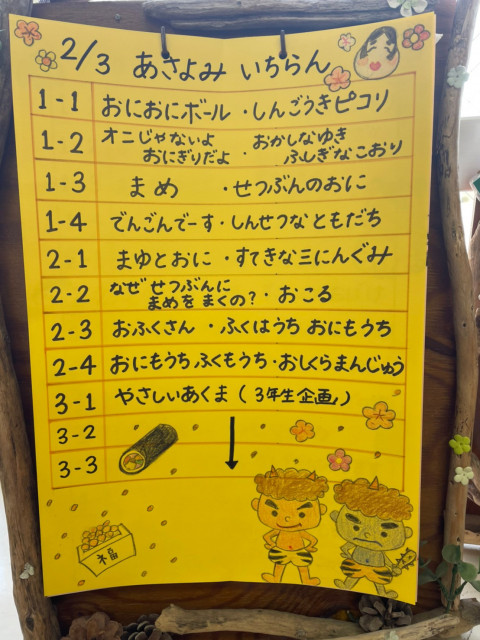 2/3 あさよみ いちらん
1-1 おにおにボール ・しんごうきピコリ
1-2 オニじゃないよ おにぎりだよ ・ おかしなゆき ふしぎなこおり
1-3 まめ ・せつぶんのおに
1-4 でんごんでーす・しんせつなともだち
2-1 まゆとおに・すてきな三にんぐみ
2-2 なぜせつぶんに まめをまくの?・おこる
2-3 おふくさん ・ふくはうち おにもうち
2-4 おにもうちふくもうち・おしくらまんじゅう
3-1 やさしいあくま(3年生企画)
3-2
3-3
福